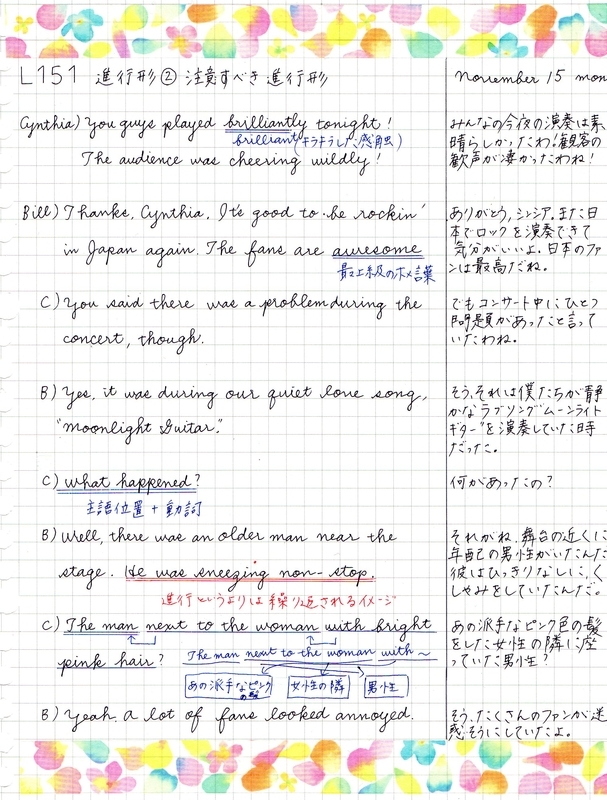 L151 進行形② 注意すべき進行形
November 15 mon
Cynthia) You guys played brilliantly tonight!
brilliant (キラキラした感触)
The audience was cheering wildly!
みんなの今夜の演奏は素
晴らしかったわ!観客の
歓声が凄かったわね!
Bill) Thanks, Cynthia. It's good to be rockin'
in Japan again. The fans are awesome
最上級のホメ言葉
ありがとう,シンシア。また日
本でロックを演奏できて
気分がいいよ。日本のファ
ンは最高だね。
C) You said there was a problem during the
concert, though.
でもコンサート中にひとつ
問題があったと言って
いたわね。
B) Yes, it was during our quiet love song,
"Moonlight Guitar."
そう,それは僕たちが静
かなラブソング"ムーンライト
ギター"を演奏していた時
だった。
C) What happened?
主語位置 + 動詞
何があったの?
B) Well, there was an older man near the
stage. He was sneezing non-stop.
進行というよりは繰り返されるイメージ
それがね,舞台の近くに
年配の男性がいたんだ
彼はひっきりなしに,く
しゃみをしていたんだ。
C) The man next to the woman with bright
pink hair?
The man next to the woman with ~
あの派手なピンクの髪
女性の隣
男性
あの派手なピンク色の髪
をした女性の隣に座
っていた男性?
B) Yeah a lot of fans looked annoyed.
そう,たくさんのファンが迷
惑そうにしていたよ。